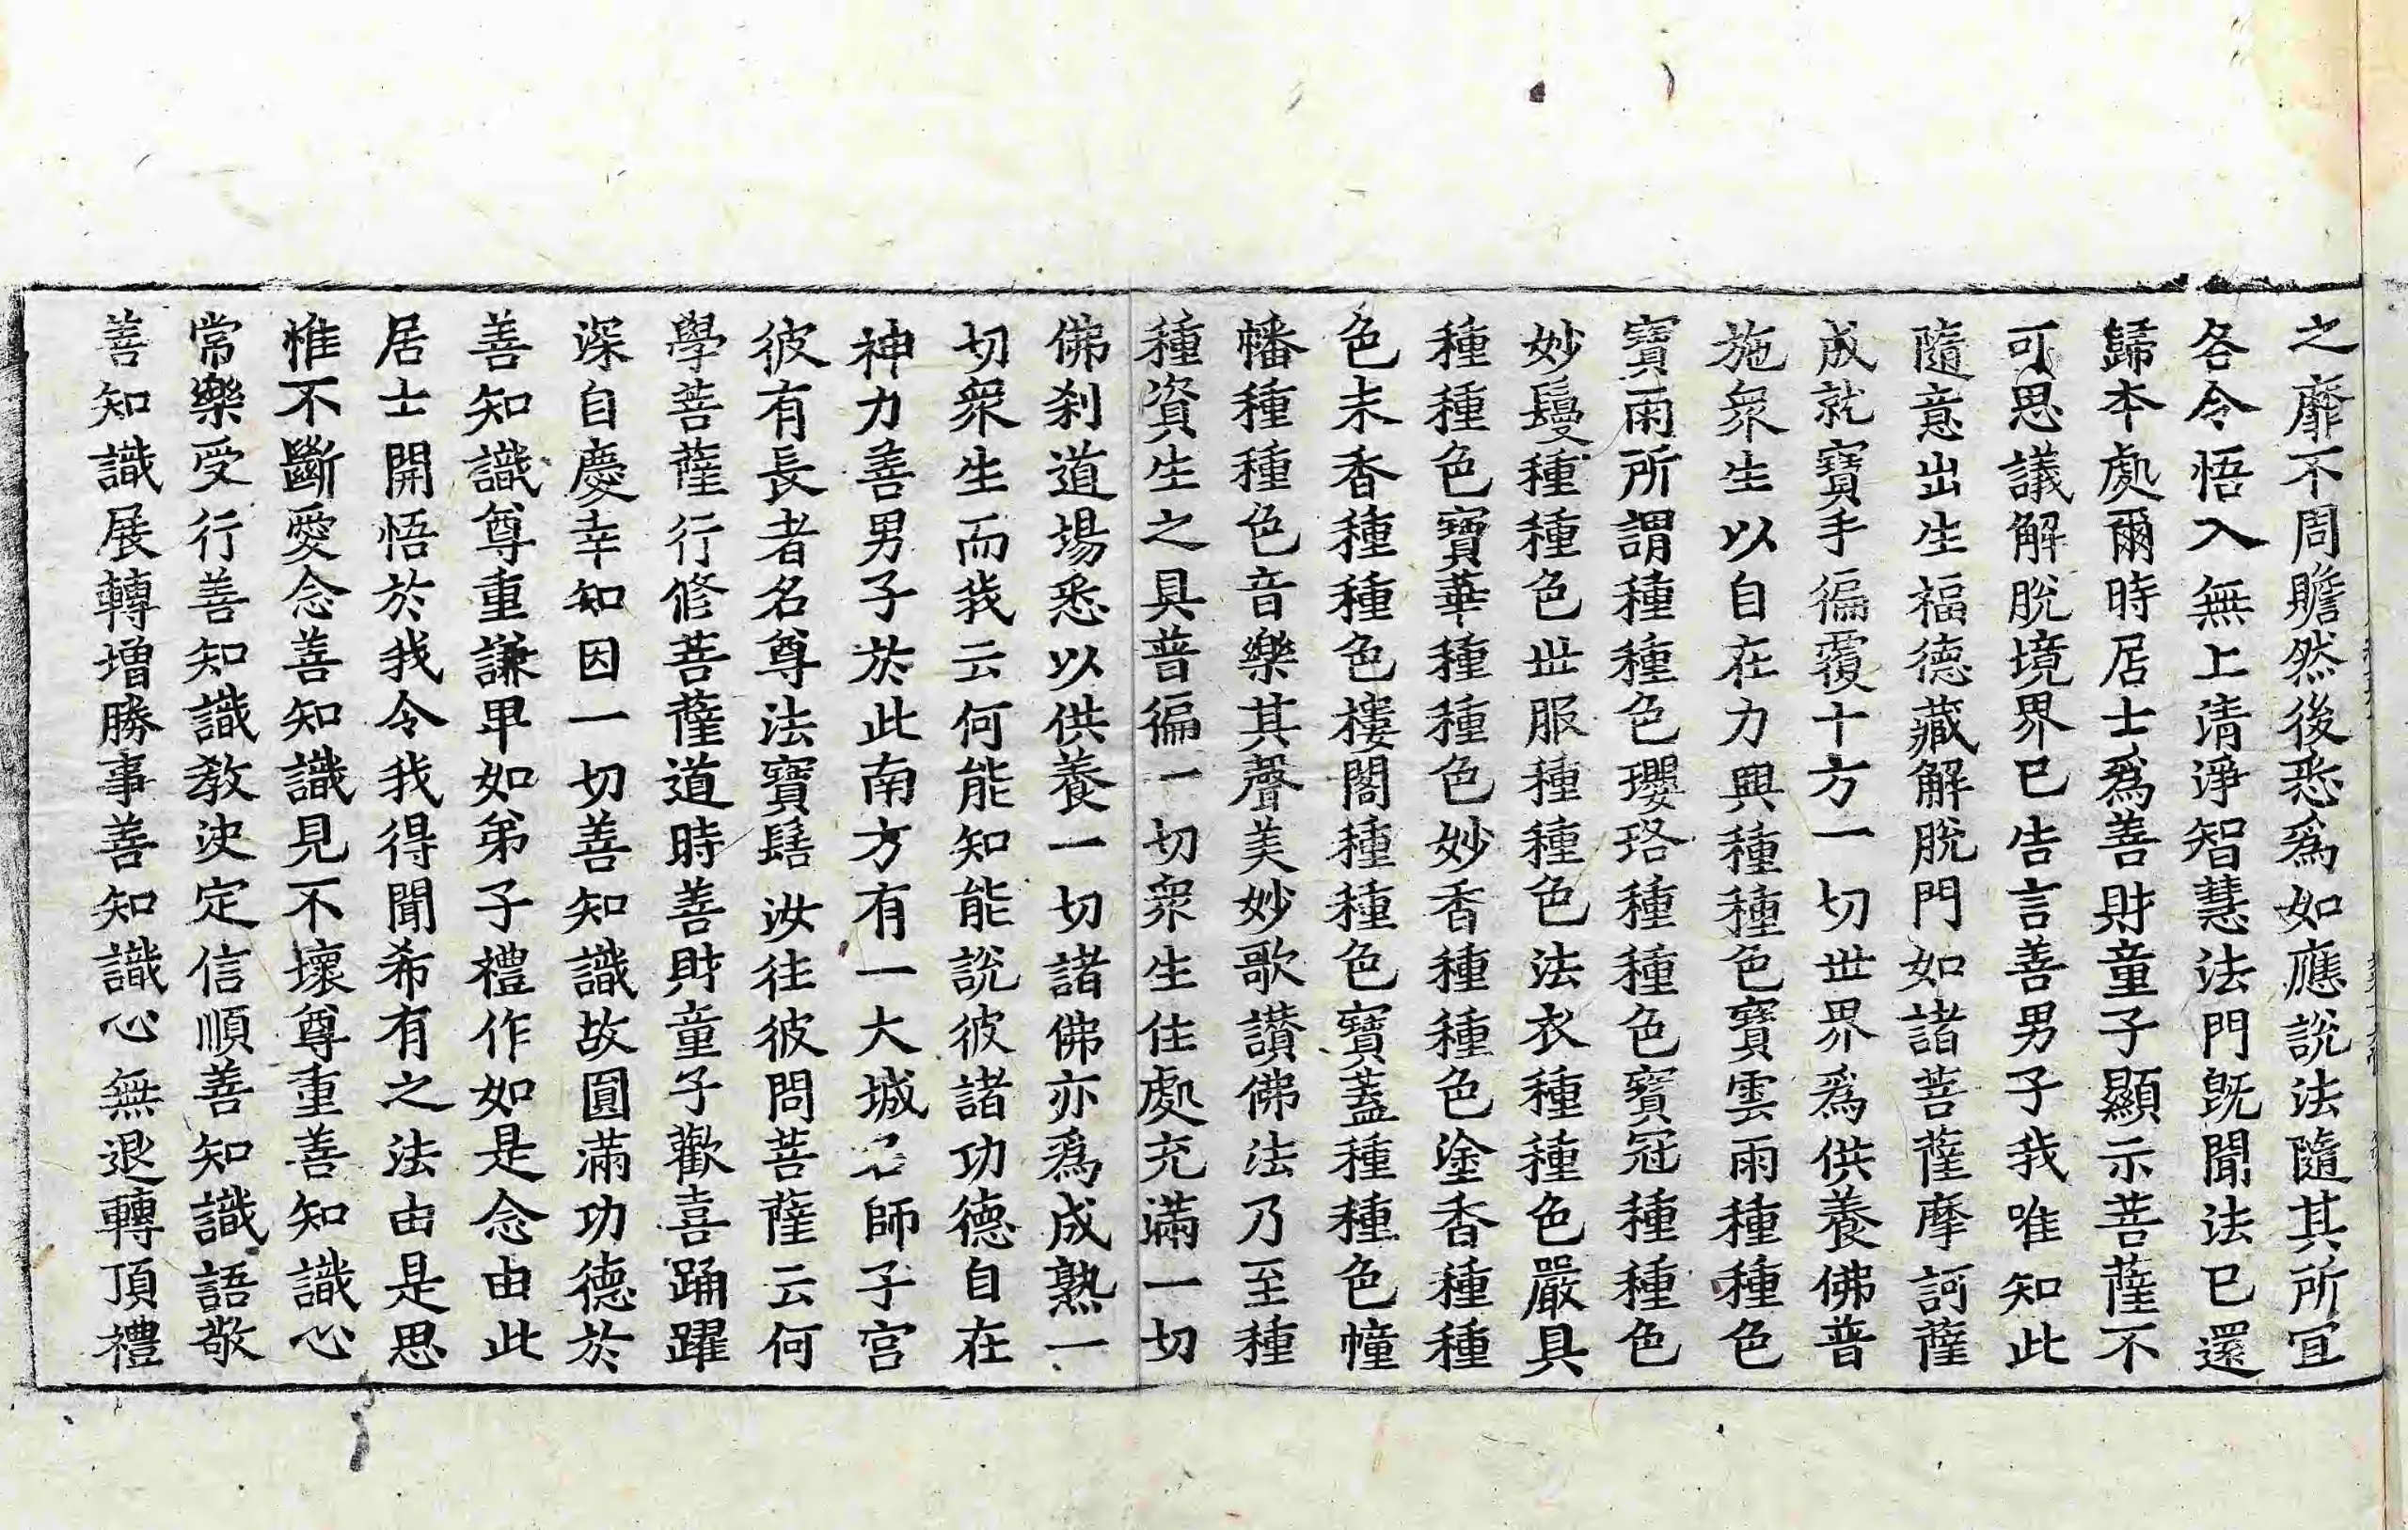 之靡不周贍然後悉爲如應說法隨其所宜
各令悟入無上清淨智慧法門旣聞法已還
歸本處爾時居士爲善財童子顯示菩薩不
可思議解脫境界已告言善男子我唯知此
隨意出生福德藏解脫門如諸菩薩摩訶薩
成就寶手徧覆十方一切世界爲供養佛普
施衆生以自在力興種種色寶雲雨種種色
寶雨所謂種種色瓔珞種種色寶冠種種色
妙鬘種種色世服種種色法衣種種色嚴具
種種色寶華種種色妙香種種色塗香種種
色末香種種色樓閣種種色寶蓋種種色幢
幡種種色音樂其聲美妙歌讚佛法乃至種
種資生之具普徧一切衆生住處充滿一切
佛刹道場悉以供養一切諸佛亦爲成熟一
切衆生而我云何能知能說彼諸功德自在
神力善男子於此南方有一大城名師子宮
彼有長者名尊法寶髻汝往彼問菩薩云何
學菩薩行修菩薩道時善財童子歡喜踊躍
深自慶幸知因一切善知識故圓滿功德於
善知識尊重謙卑如弟子禮作如是念由此
居士開悟於我令我得聞希有之法由是思
惟不斷愛念善知識見不壞尊重善知識心
常樂受行善知識教決定信順善知識語敬
善知識展轉增勝事善知識心無退轉頂禮